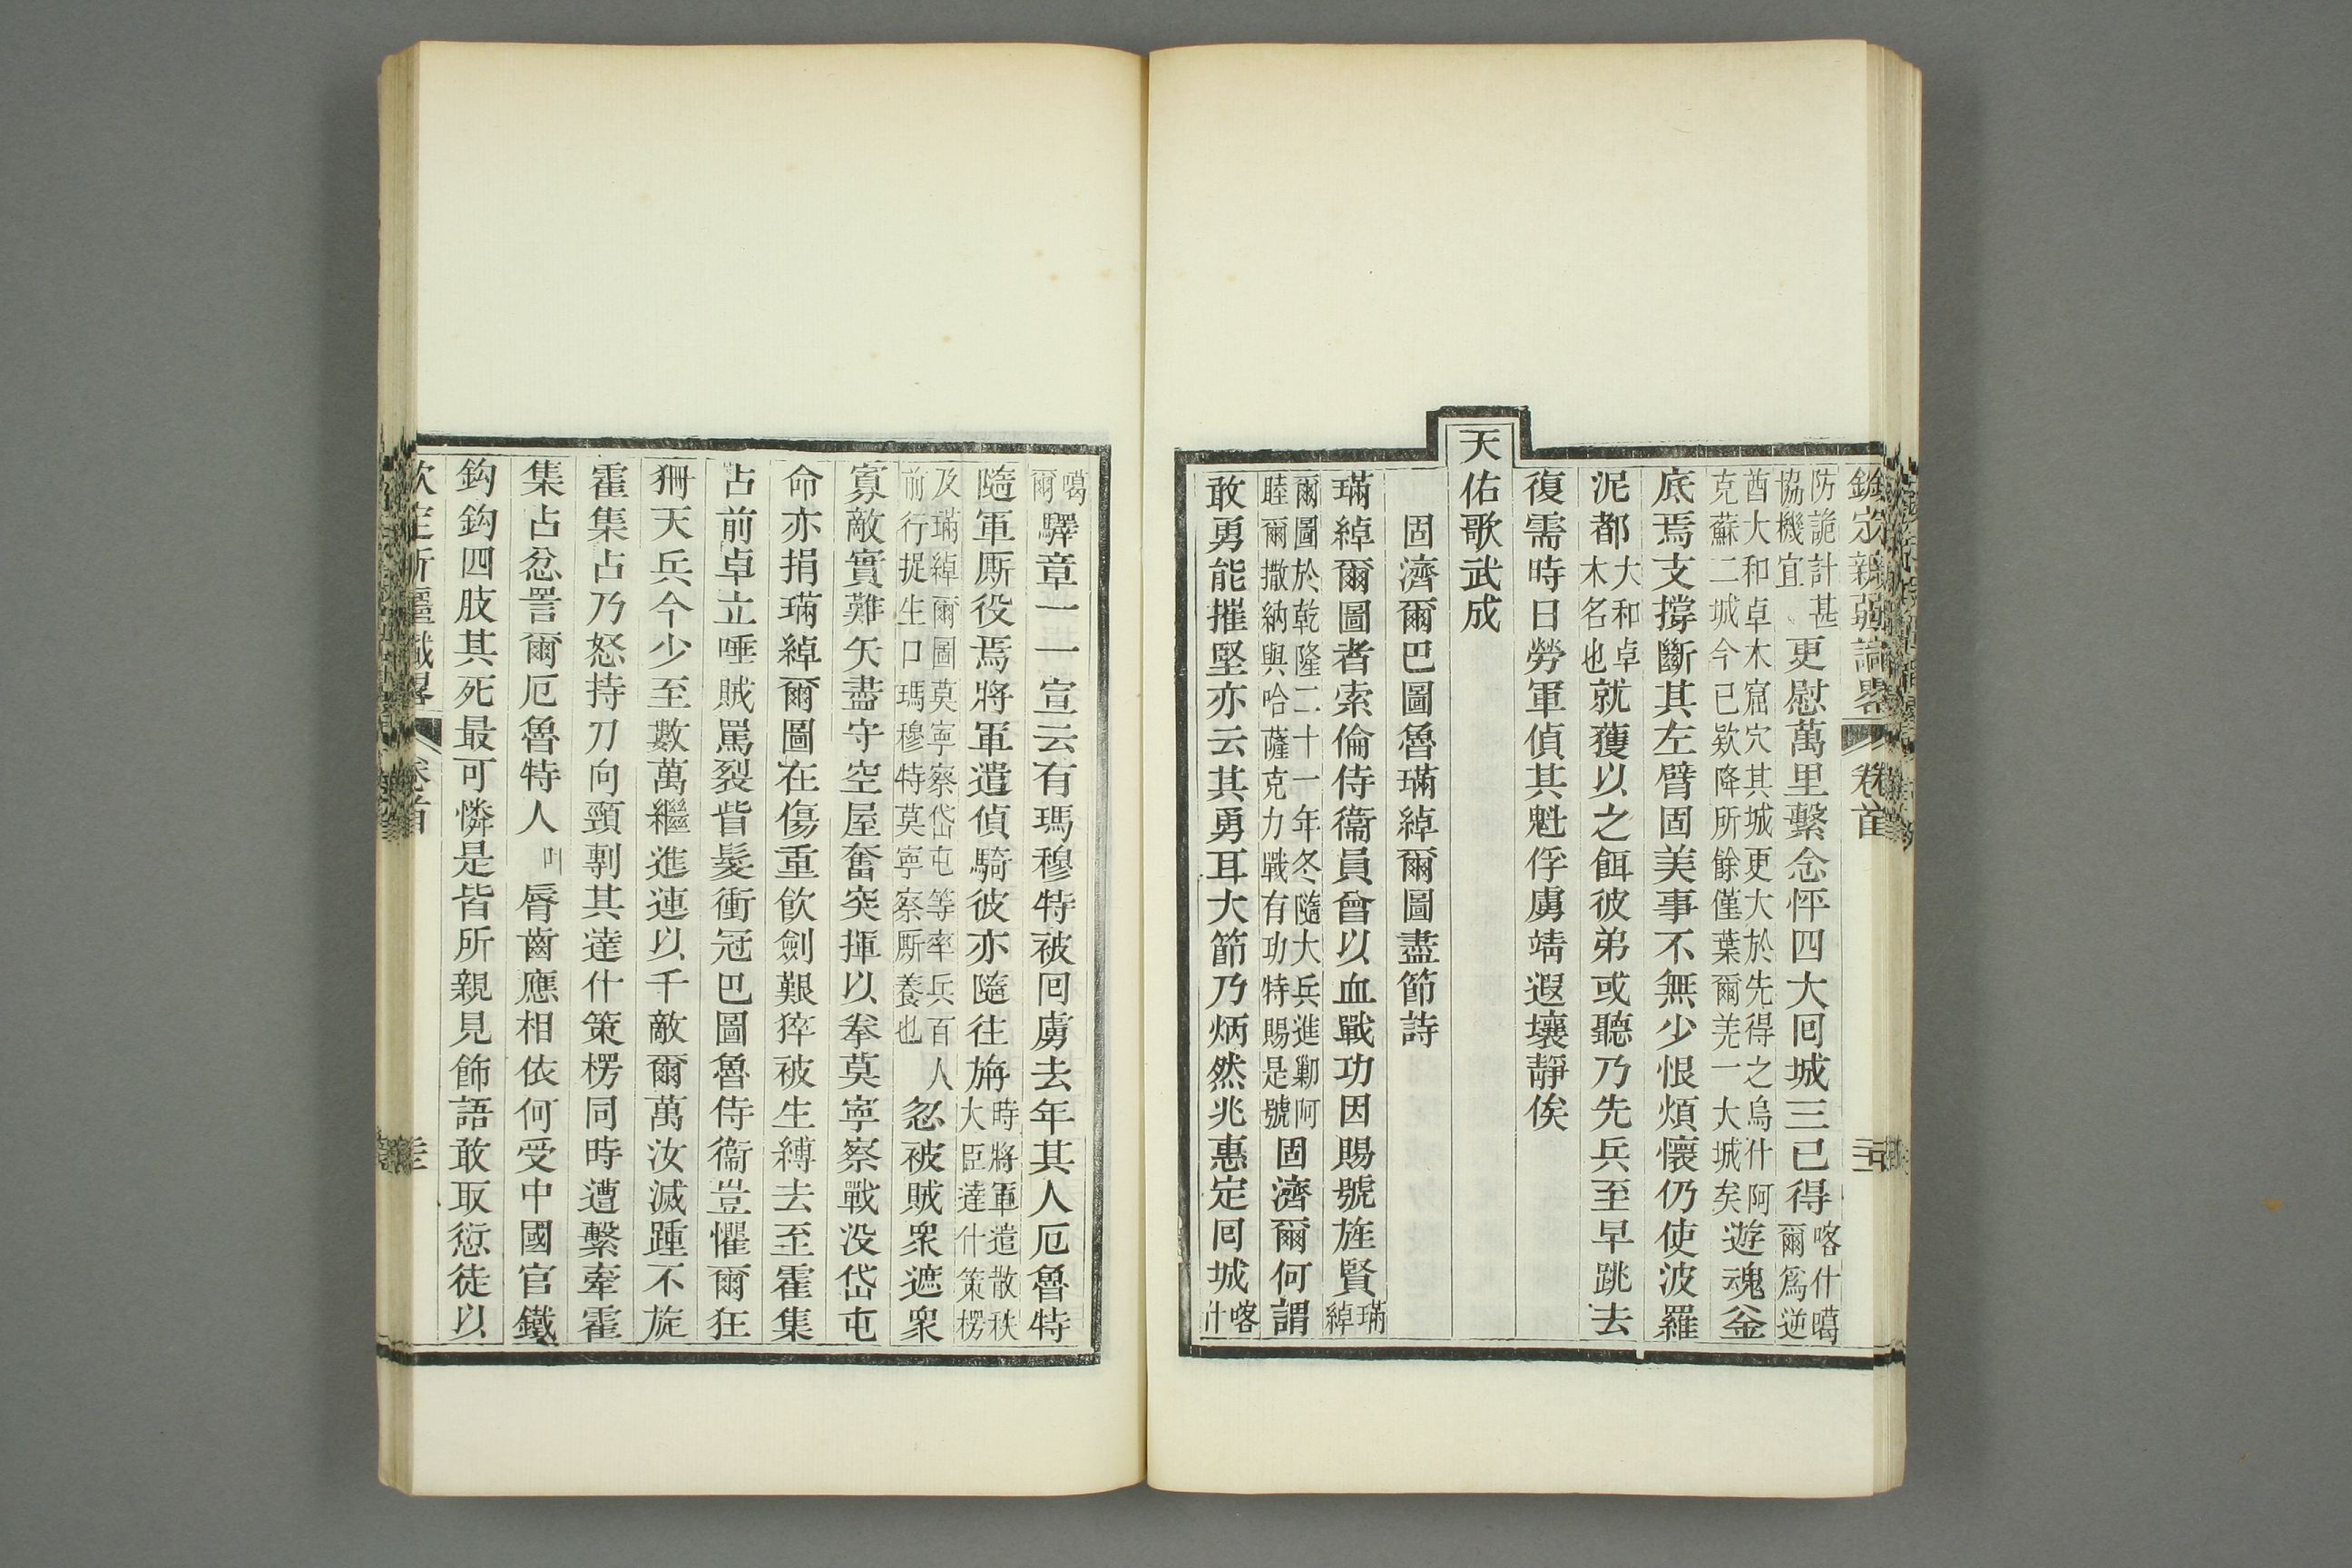 欽定新疆識畧 卷首
防詭計甚
協機宜
更慰萬里繫念怦四大囘城三已得
喀什噶
爾為逆
酋大和卓木窟穴其城更大於先得之烏什阿
克蘇二城今已欵降所餘僅葉爾羌一大城矣
遊魂釜
底焉支撐斷其左臂固美事不無少恨煩懷仍使波羅
泥都
大和卓
木名也
就獲以之餌彼弟或聽乃先兵至早跳去
復需時日勞軍偵其魁俘虜靖遐壤靜俟
天佑歌武成
固濟爾巴圖魯瑞綽爾圖盡節詩
瑞綽爾圖者索倫侍衞員曾以血戰功因賜號旌賢
瑞
綽
爾圖於乾隆二十一年冬隨大兵進勦阿
睦爾撒納與哈薩克力戰有功特賜是號
固濟爾何謂
敢勇能摧堅亦云其勇耳大節乃炳然兆惠定囘城
喀
什
噶
爾
驛章一一宣云有瑪穆特被囘虜去年其人厄魯特
隨軍厮役焉將軍遣偵騎彼亦隨往旃
時將軍遣散秩
大臣達什策楞
及瑞綽爾圖莫寧察岱屯等率兵百人
前行捉生口瑪穆特莫寧察厮養也
忽被賊衆遮衆
寡敵實難矢盡守空屋奮突揮以拳莫寧察戰没岱屯
命亦捐瑞綽爾圖在傷重飲劍艱猝被生縛去至霍集
占前卓立唾賊罵裂眥髮衝冠巴圖魯侍衞豈懼爾狂
狦天兵今少至數萬繼進連以千敵爾萬汝滅踵不旋
霍集占乃怒持刀向頸剸其達什策楞同時遭繫牽霍
集占忿詈爾厄魯特人
脣齒應相依何受中國官鐵
鈎鈎四肢其死最可憐是皆所親見飾語敢取愆徒以
欽定新疆識畧 卷首